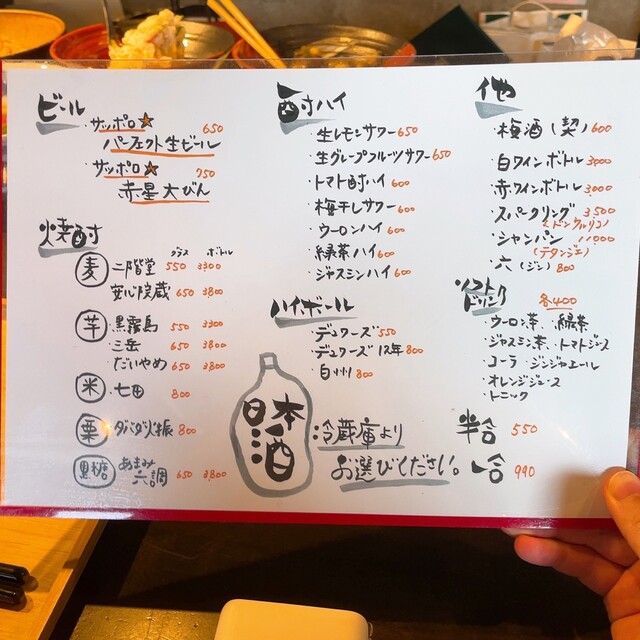 ビール
サッポロ★
パーフェクト生ビール 650
サッポロ★ 750
赤星大びん
焼酎
グラス ボトル
麦 二階堂 550 3300
安心院蔵 650 3800
芋 ・黒霧島 550 3300
・三岳 650 3800
・だいやめ 650 3800
米 ・七田 800
栗 ダバダ火振 800
黒糖 あまみ六調 650 3800
酎ハイ
・生レモンサワー 650
・生グレープフルーツサワー 650
・トマト酎ハイ 600
・梅干しサワー 600
・ウーロンハイ 600
・緑茶ハイ 600
・ジャスミンハイ 600
ハイボール
・デュワーズ 550
・デュワーズ12年 800
・白州 800
日本酒
冷蔵庫より
お選びください。
半合 550
一合 990
他
・梅酒(契) 600
・白ワインボトル 3000
・赤ワインボトル 3000
・スパークリング 3,500
・シャンパン 11000
・六(ジン) 800
ソフトドリンク 各400
・ウーロン茶 ・緑茶
・ジャスミン茶 ・トマトジュース
・コーラ ・ジンジャエール
・オレンジジュース
・トニック